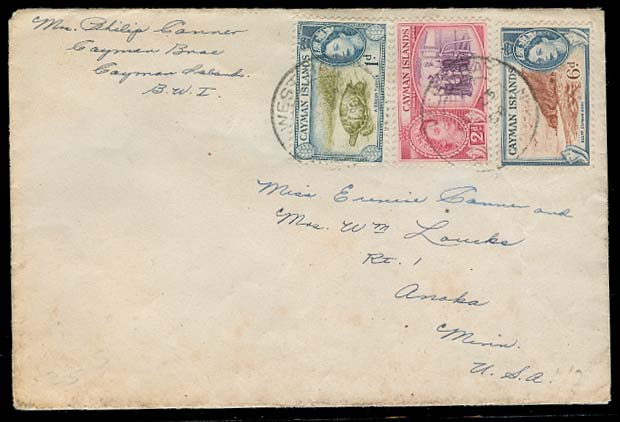 Mrs. Philip Conner
Cayman Brac
Cayman Islands
B.W.I.
WES
CAYMAN ISLANDS
1d
CAYMAN ISLANDS
2d
CAYMAN ISLANDS
6d
Miss Eunice Conner and
Mrs. Wm Loucks
Rt. 1
Anoka
Minn.
U.S.A.